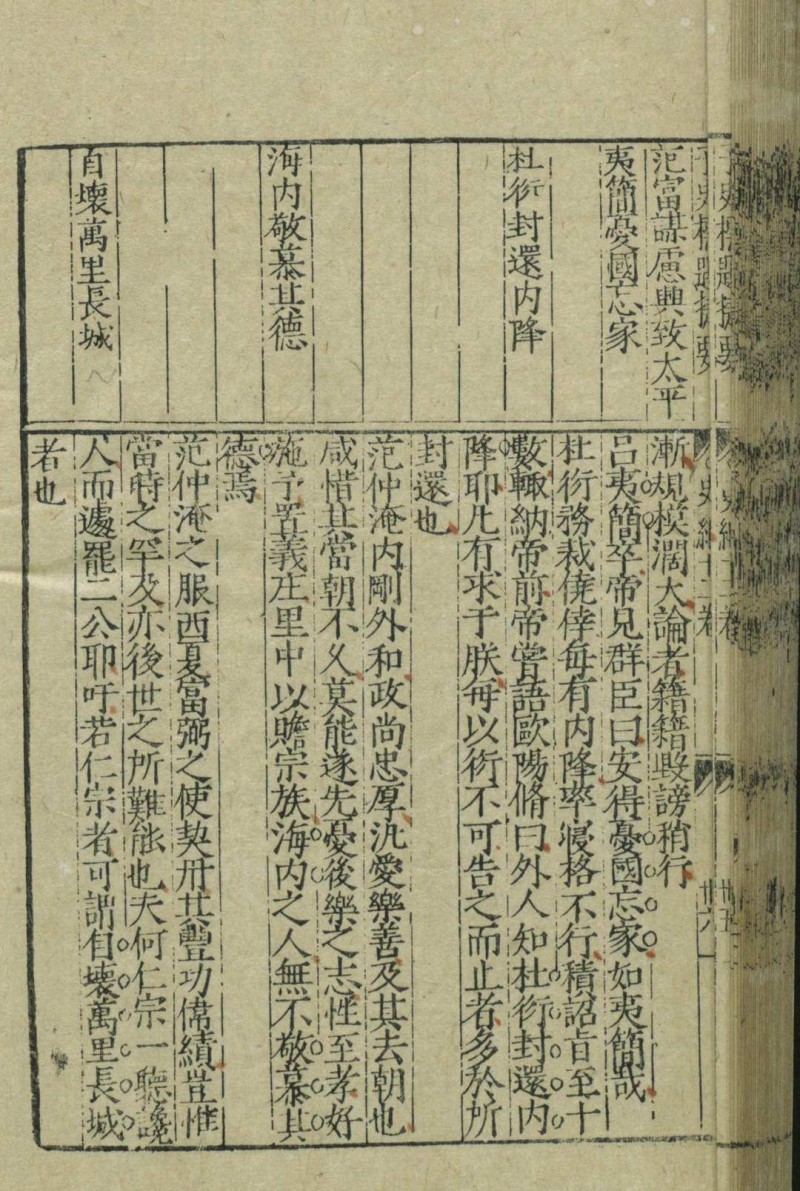 范富謀慮興致太平
夷簡憂國忘家
杜衍封還內降
海內敬慕其德
自壞萬里長城
漸規模濶大論者籍籍毀謗稍行
呂夷簡卒帝見群臣曰安得憂國忘家如夷簡哉
杜衍務裁僥倖每有內降率寢格不行積詔旨至十
數輒納帝前帝嘗語歐陽脩曰外人知杜衍封還內
降耶凡有求于朕每以衍不可告之而止者多於所
封還也
范仲淹內剛外和政尚忠厚汎愛樂善及其去朝也
咸惜其當朝不久莫能遂先憂後樂之志性至孝好
施予置義庄里中以贍宗族海內之人無不敬慕其
德焉
范仲淹之服西夏富弼之使契丹其豐功偉績豈惟
當時之罕及亦後世之所難能也夫何仁宗一聽讒
人而遽罷二公耶吁若仁宗者可謂自壞萬里長城
者也